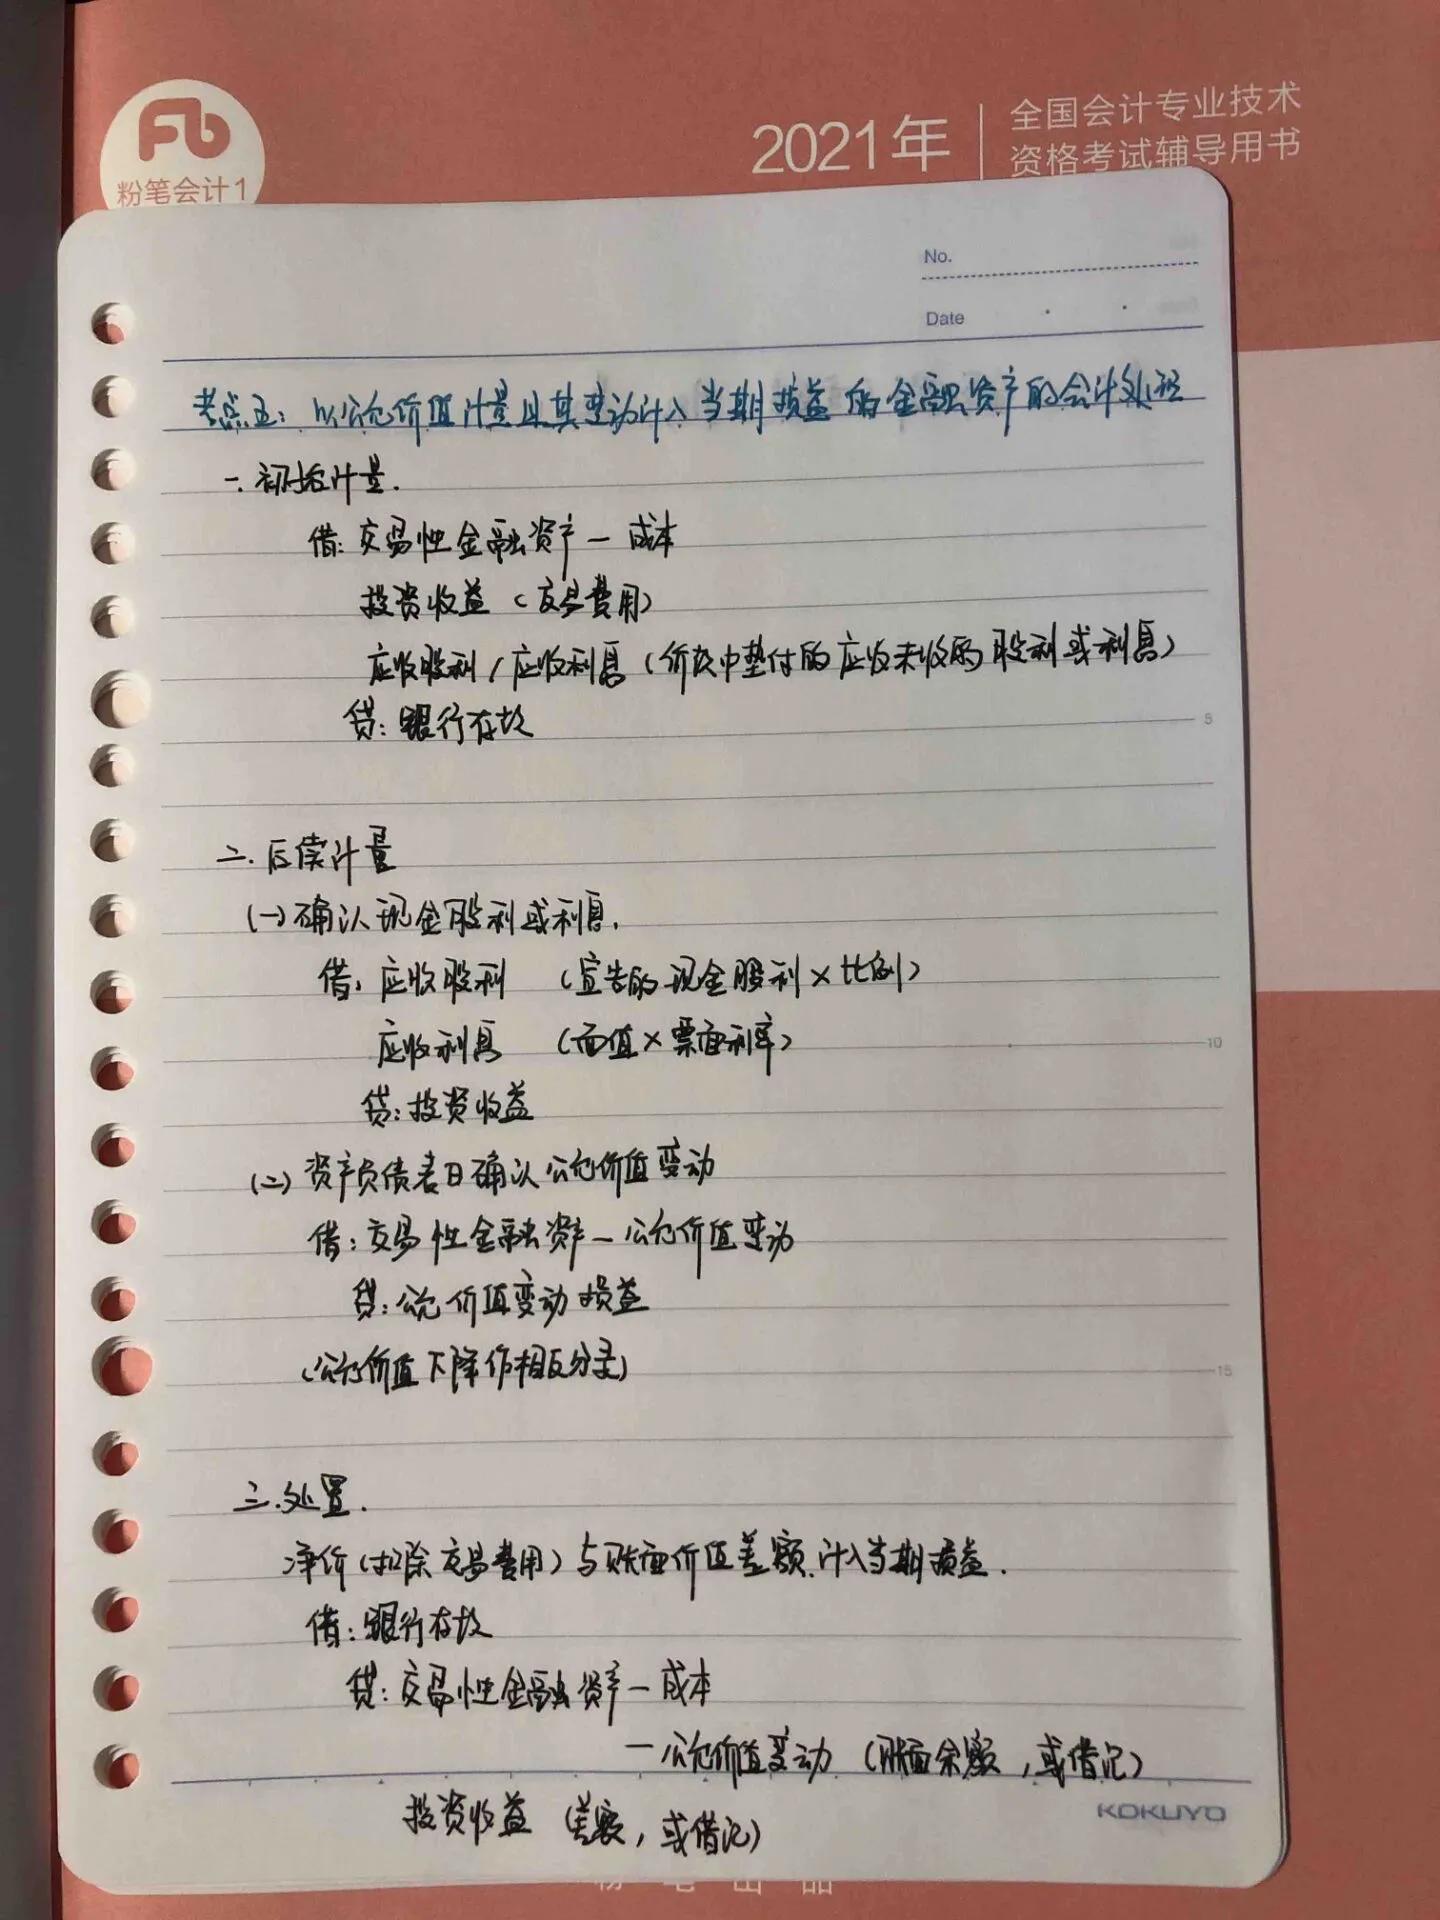 Fb
粉笔会计1
2021年
全国会计专业技术
资格考试辅导用书
No.
Date
考点五：以公允价值计量且其变动计入当期损益的金融资产的会计处理
一.初始计量.
借：交易性金融资产—成本
投资收益（交易费用）
应收股利/应收利息（价款中垫付的应收未收的股利或利息）
贷：银行存款
5
二.后续计量
(一)确认现金股利或利息.
借：应收股利 （宣告的现金股利×比例）
应收利息 （面值×票面利率）
10
贷：投资收益
(二)资产负债表日确认公允价值变动
借：交易性金融资产—公允价值变动
贷：公允价值变动损益
（公允价值下降作相反分录）
15
三.处置.
净价（扣除交易费用）与账面价值差额.计入当期损益.
借：银行存款
贷：交易性金融资产—成本
—公允价值变动（账面余额，或借记）
投资收益（差额，或借记）
KOKUYO
粉笔出品